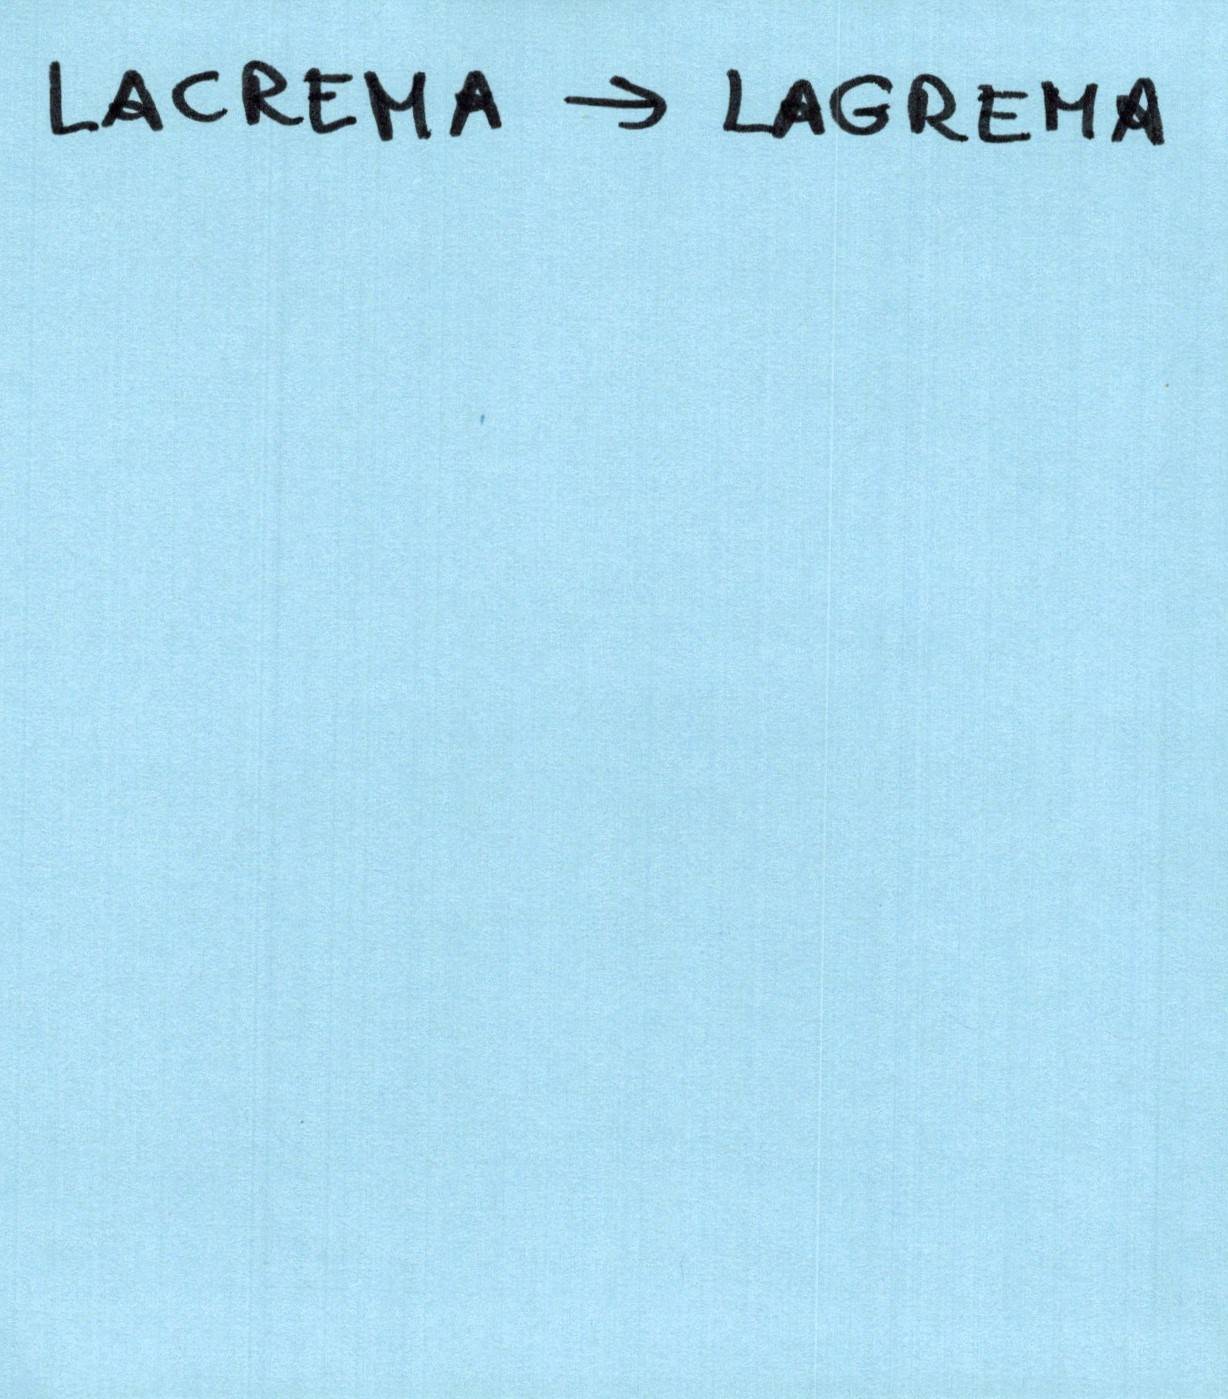 LACREMA → LAGREMA